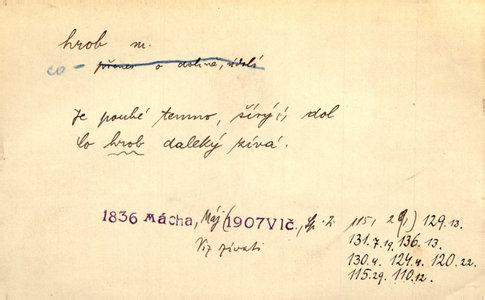 hrob m.
co – přenes. o dolině, údolí
Je pouhé temno, šírý dol
Co hrob daleký zívá.
1836 Mácha, Máj (1907 Vlč., Sp. 115, 29,) 129.13.
Viz zívati
131.7,14, 136.13.
130.4. 124.4. 120.22
115.29. 110.12.